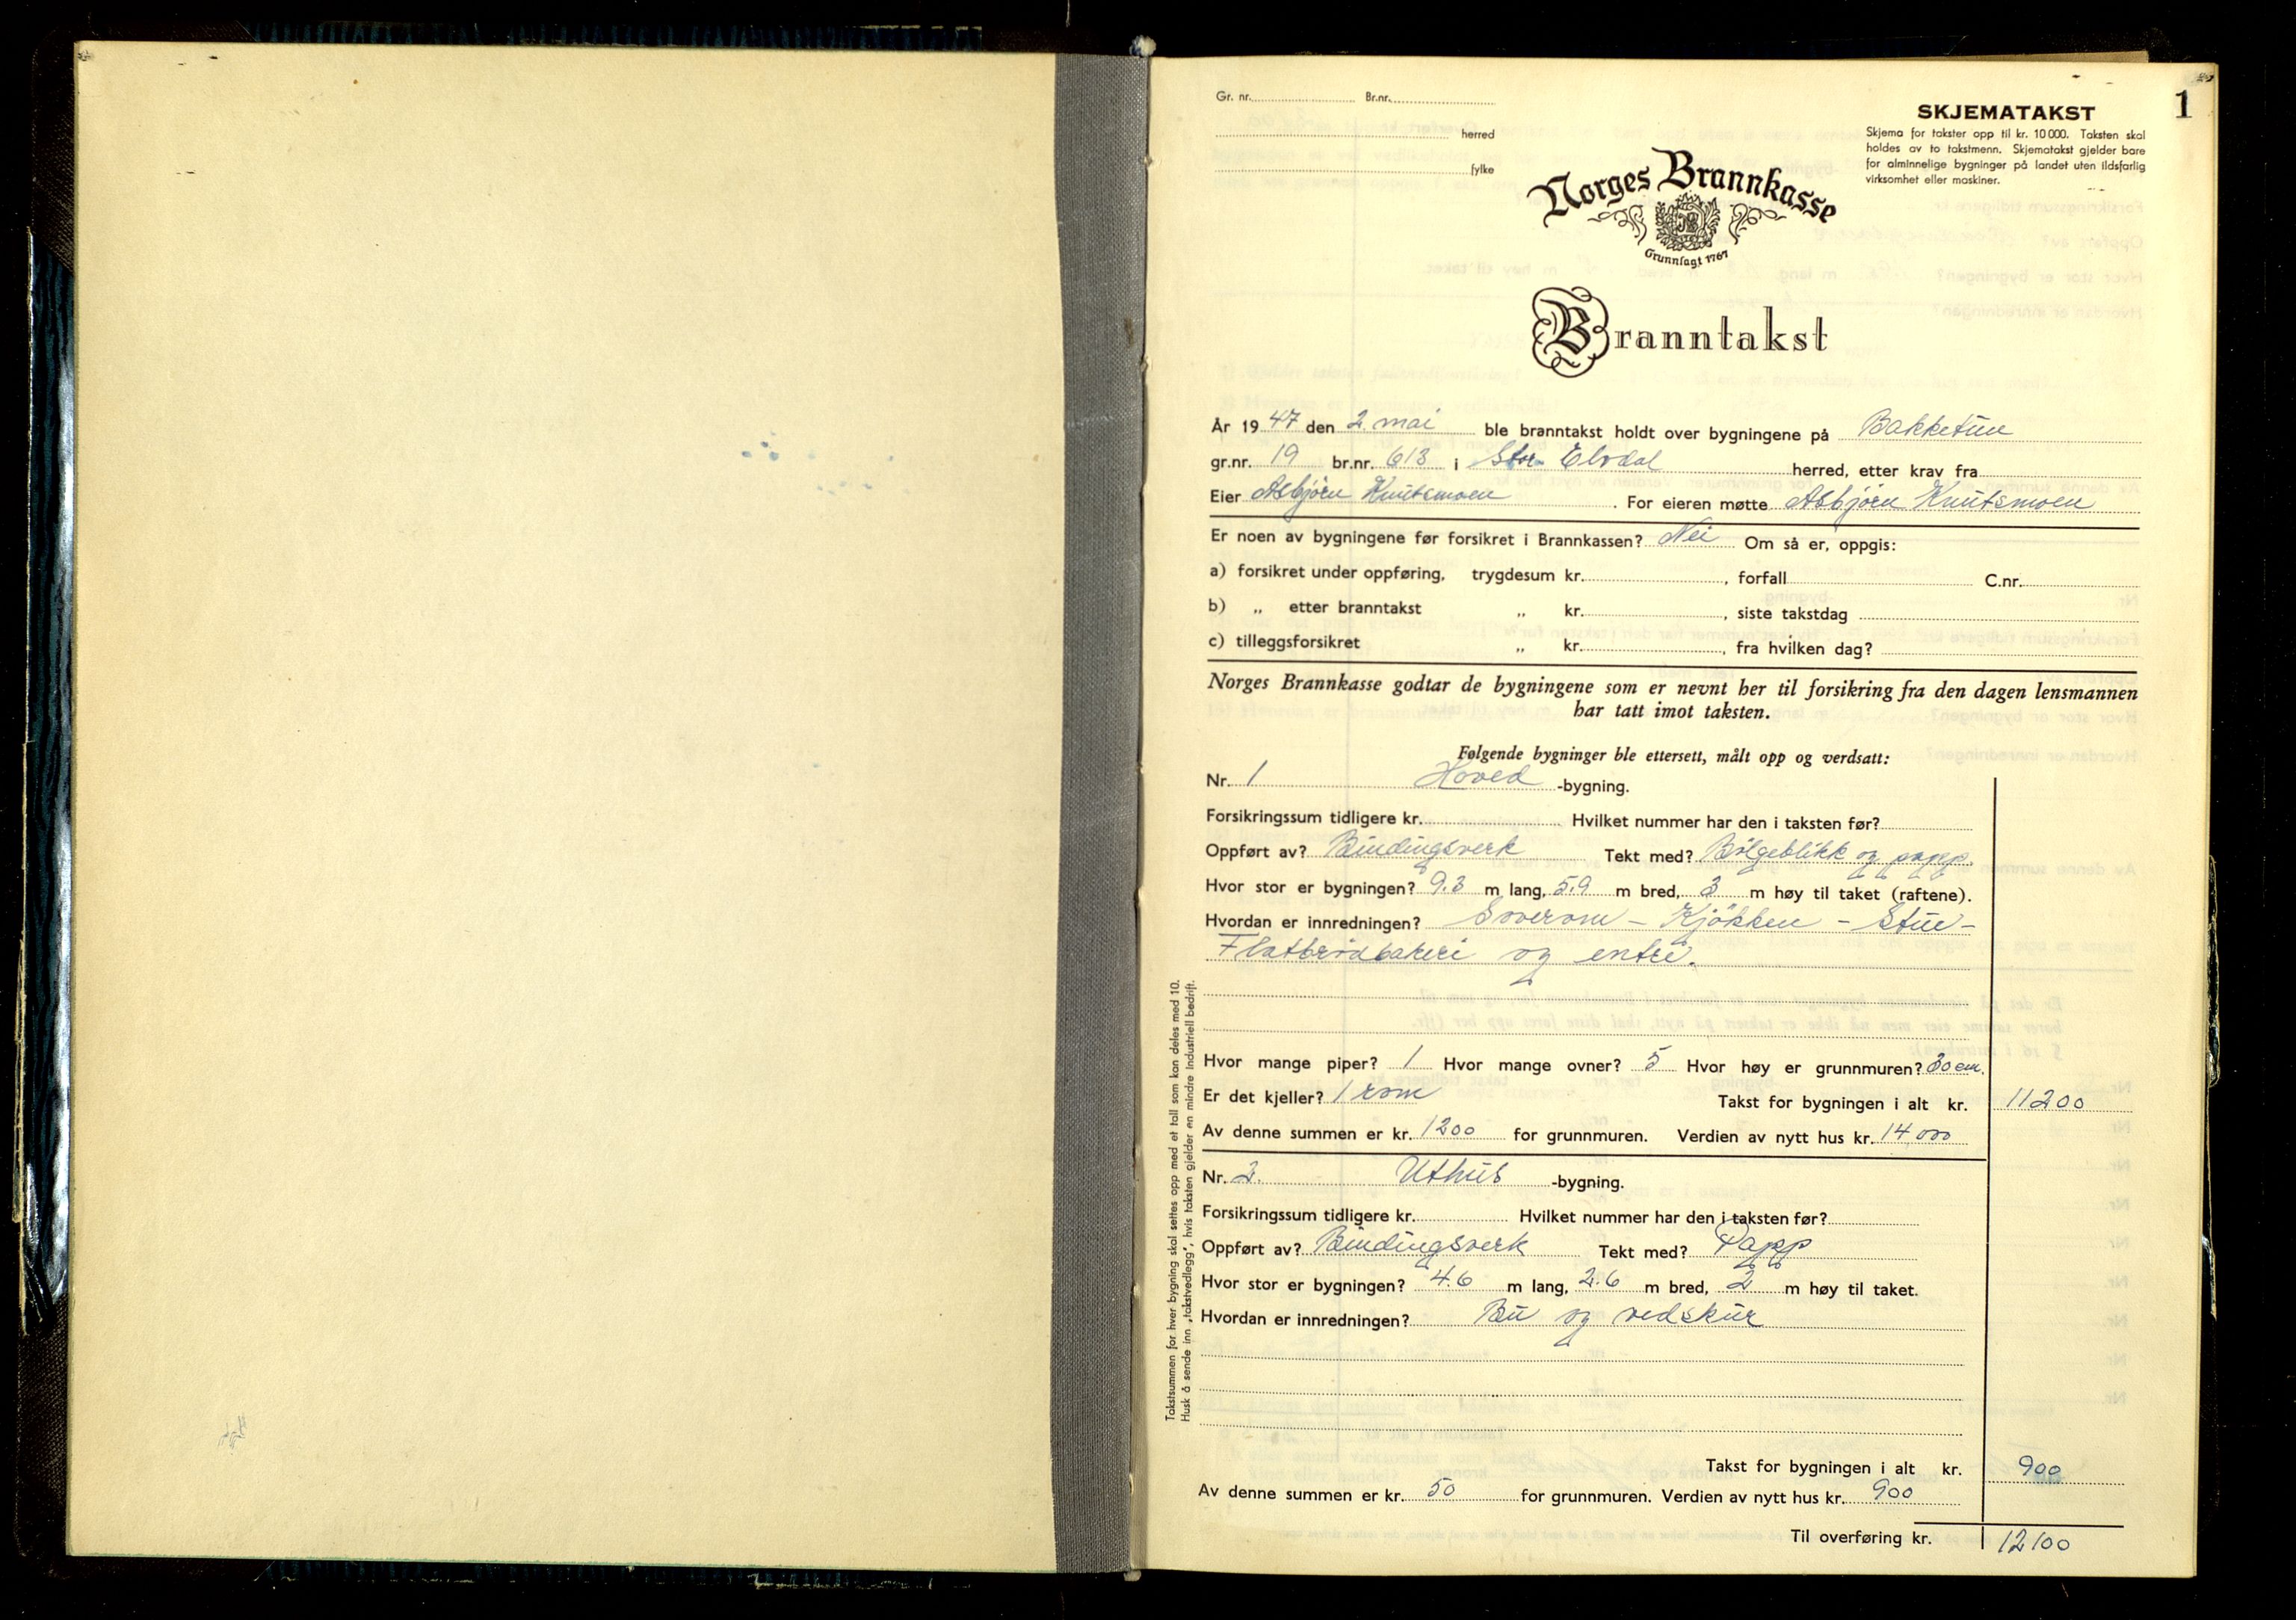 1
Gr. nr. Br.nr.
herred
fylke
SKJEMATAKST
Skjema for takster opp til kr. 10 000. Taksten skal
holdes av to takstmenn. Skjematakst gjelder bare
for alminnelige bygninger på landet uten ildsfarlig
virksomhet eller maskiner.
Norges Brannkasse
Grunnlagt 1767
Branntakst
År 1947 den 2. mai ble branntakst holdt over bygningene på Bakketun
gr.nr. 19 br.nr. 613 i Stor-Elvdal herred, etter krav fra
Eier Asbjørn Knutsmoen. For eieren møtte Asbjørn Knutsmoen
Er noen av bygningene før forsikret i Brannkassen? Nei Om så er, oppgis:
a) forsikret under oppføring, trygdesum kr. , forfall C.nr.
b) „ etter branntakst „ kr. , siste takstdag
c) tilleggsforsikret „ kr. , fra hvilken dag?
Norges Brannkasse godtar de bygningene som er nevnt her til forsikring fra den dagen lensmannen
har tatt imot taksten.
Følgende bygninger ble ettersett, målt opp og verdsatt:
Nr. 1 Hoved -bygning.
Forsikringssum tidligere kr. Hvilket nummer har den i taksten før?
Oppført av? Bindingsverk Tekt med? Bölgeblikk og papp.
Hvor stor er bygningen? 9.3 m lang, 5.9 m bred, 3 m høy til taket (raftene).
Hvordan er innredningen? Soverom - Kjökken - Stue -
Flatbrödbakeri og entré.
Hvor mange piper? 1 Hvor mange ovner? 5 Hvor høy er grunnmuren? 30 cm.
Er det kjeller? 1 rom Takst for bygningen i alt kr. 11200
Av denne summen er kr. 1200 for grunnmuren. Verdien av nytt hus kr. 14,000
Nr. 2. Uthus -bygning.
Forsikringssum tidligere kr. Hvilket nummer har den i taksten før?
Oppført av? Bindingsverk Tekt med? Papp
Hvor stor er bygningen? 4.6 m lang, 2.6 m bred, 2 m høy til taket.
Hvordan er innredningen? Bu og vedskur
Takst for bygningen i alt kr. 900
Av denne summen er kr. 50 for grunnmuren. Verdien av nytt hus kr. 900
Til overføring kr. 12100
Takstsummen for hver bygning skal settes opp med et tall som kan deles med 10.
Husk å sende inn „takstvedlegg", hvis taksten gjelder en mindre industriell bedrift.